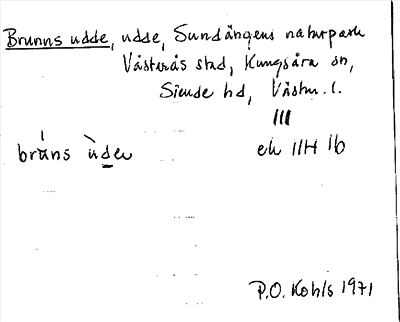 Brunns udde, udde, Sundängens naturpark
Västerås stad, Kungsåra sn,
Siende hd, Västm. l.
III
bruns ùden ek 11H 1b
P.O. Kohls 1971